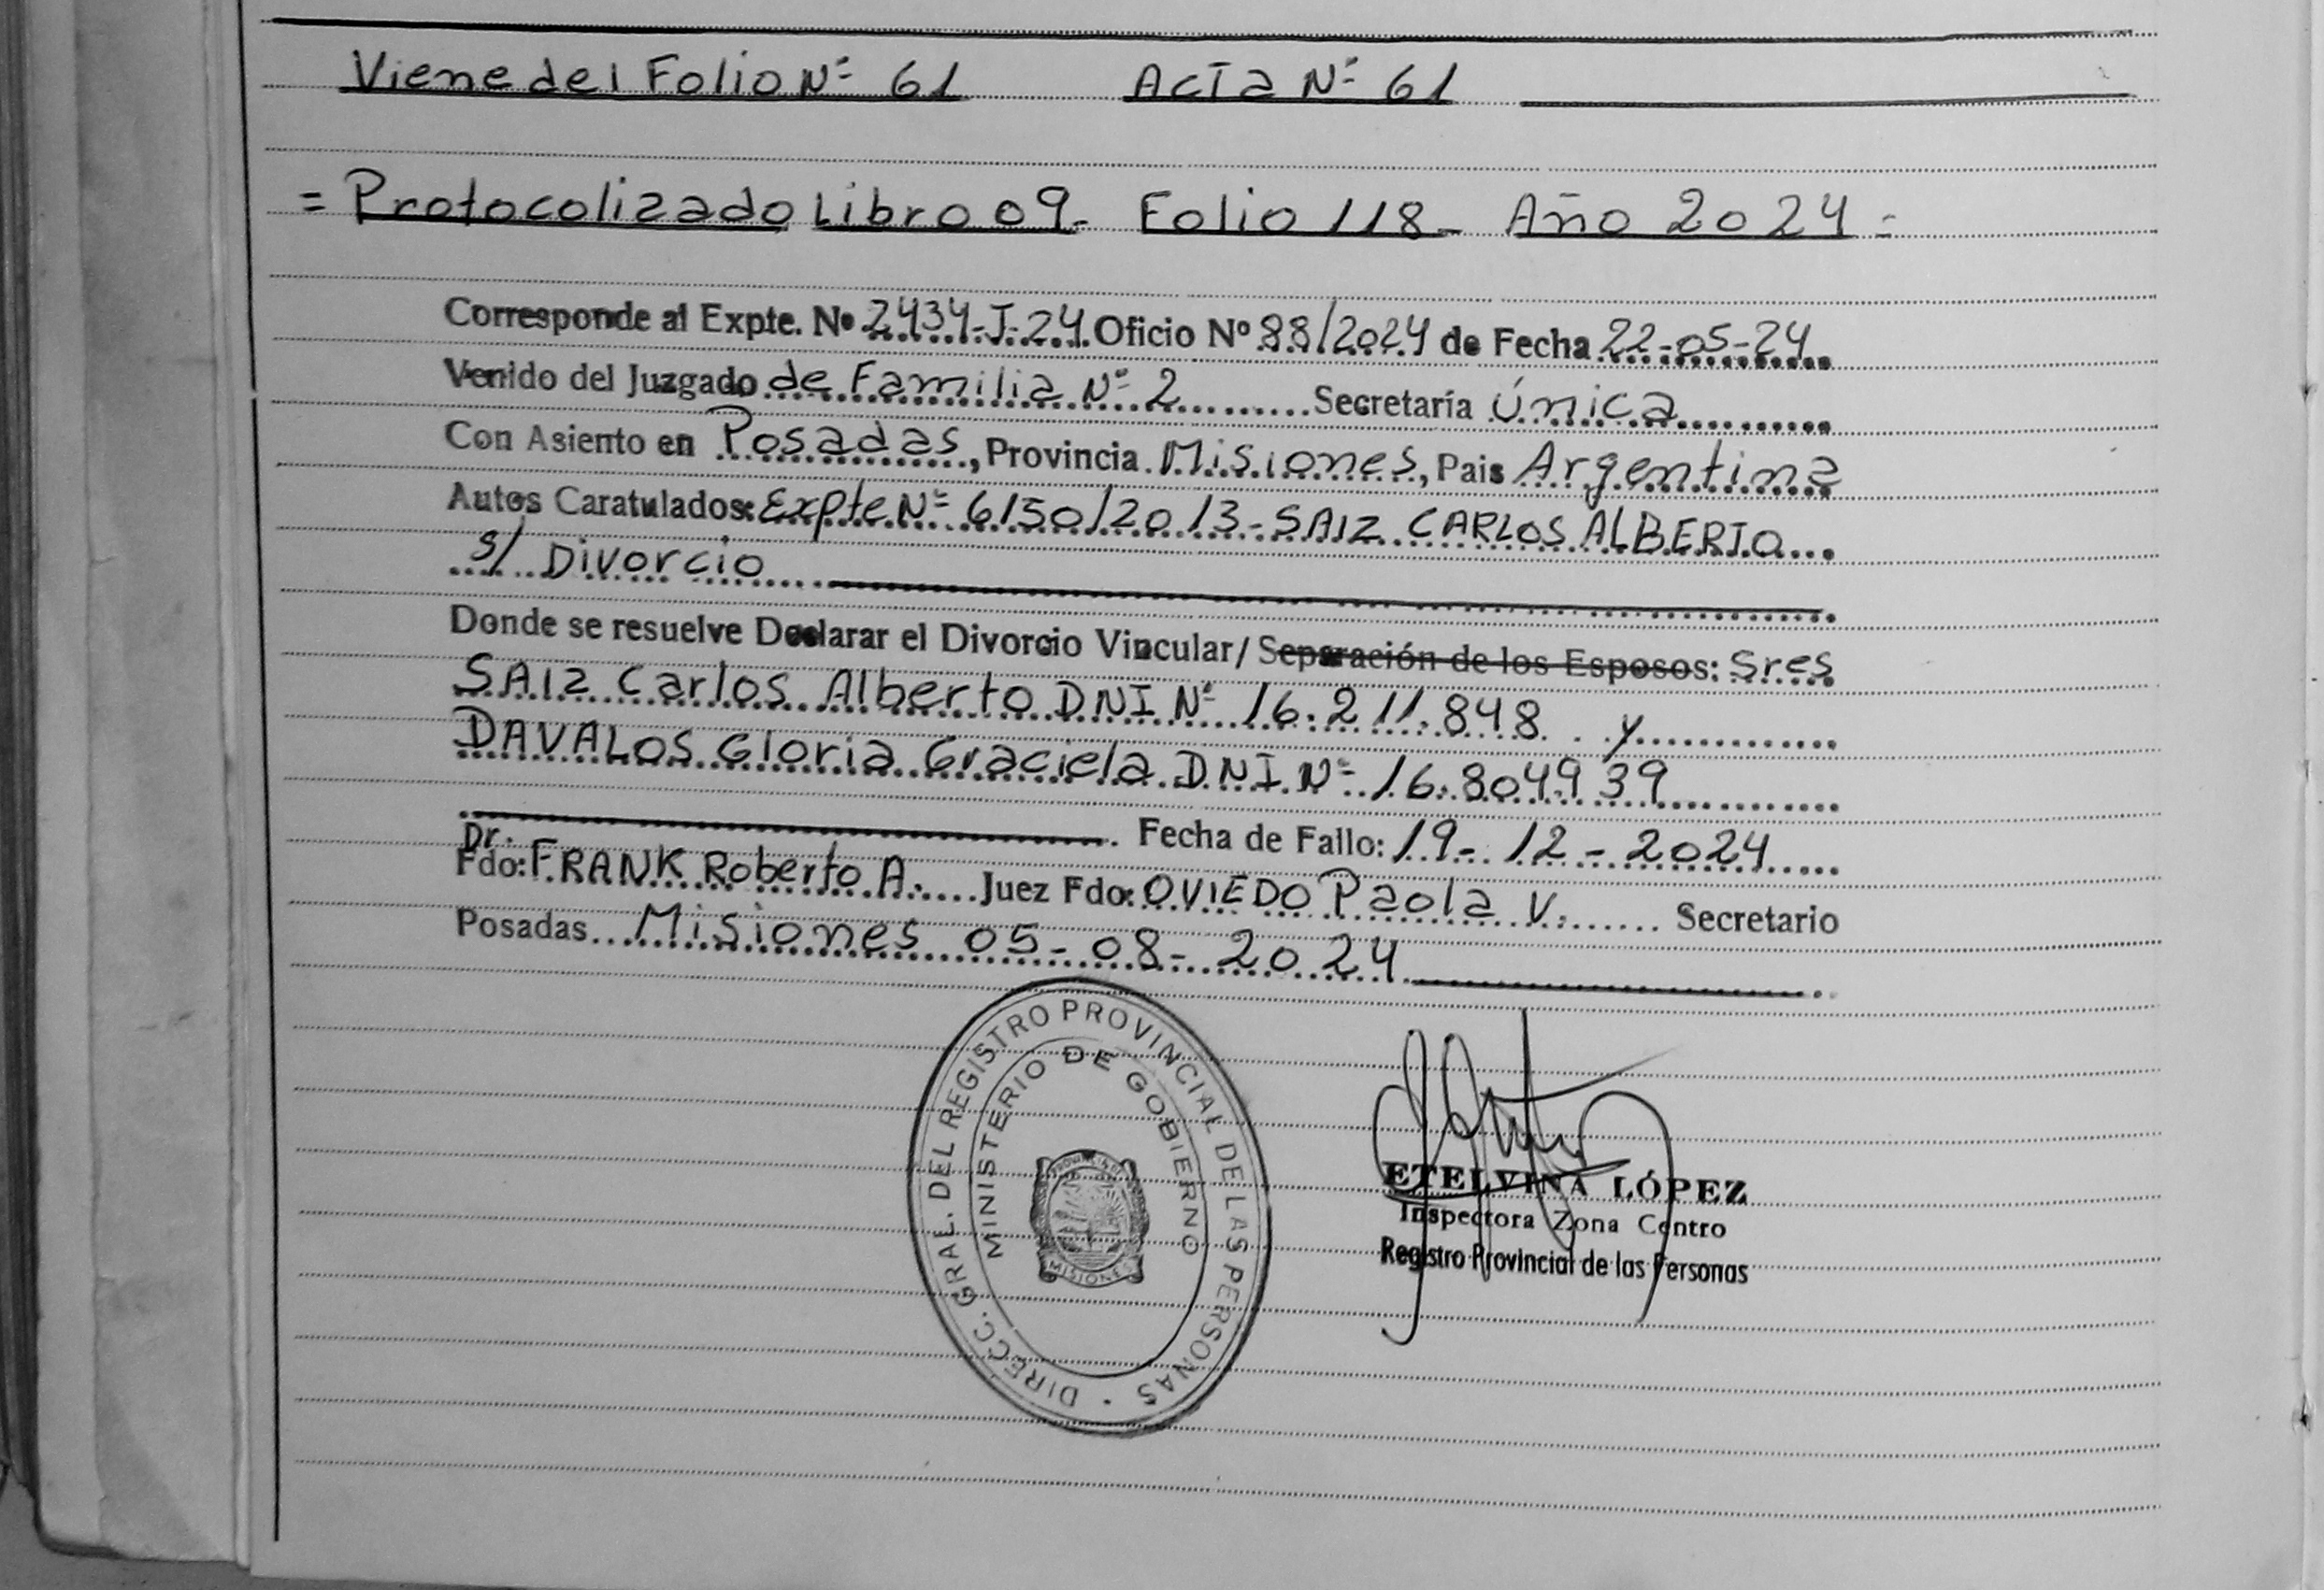 Viene del Folio Nº 61 Acta Nº 61
= Protocolizado Libro 09- Folio 118- Año 2024=
Corresponde al Expte. Nº 2434-J-24 Oficio Nº 88/2024 de Fecha 22-05-24
Venido del Juzgado de Familia Nº 2 Secretaría Única
Con Asiento en Posadas, Provincia Misiones, Pais Argentina
Autos Caratulados: Expte Nº 6150/2013-SAIZ CARLOS ALBERTO
s/ Divorcio
Donde se resuelve Declarar el Divorcio Vincular/ Separación de los Esposos: Sres
SAIZ Carlos Alberto DNI Nº 16.211.848 y
DAVALOS Gloria Graciela DNI Nº 16.804939
Fecha de Fallo: 19-12-2024
Dr.
Fdo: FRANK Roberto A. Juez Fdo: OVIEDO Paola V. Secretario
Posadas Misiones 05-08-2024
DIRECC. GRAL. DEL REGISTRO PROVINCIAL DE LAS PERSONAS
MINISTERIO DE GOBIERNO
PROVINCIA DE
MISIONES
ETELVINA LÓPEZ
Inspectora Zona Centro
Registro Provincial de las Personas